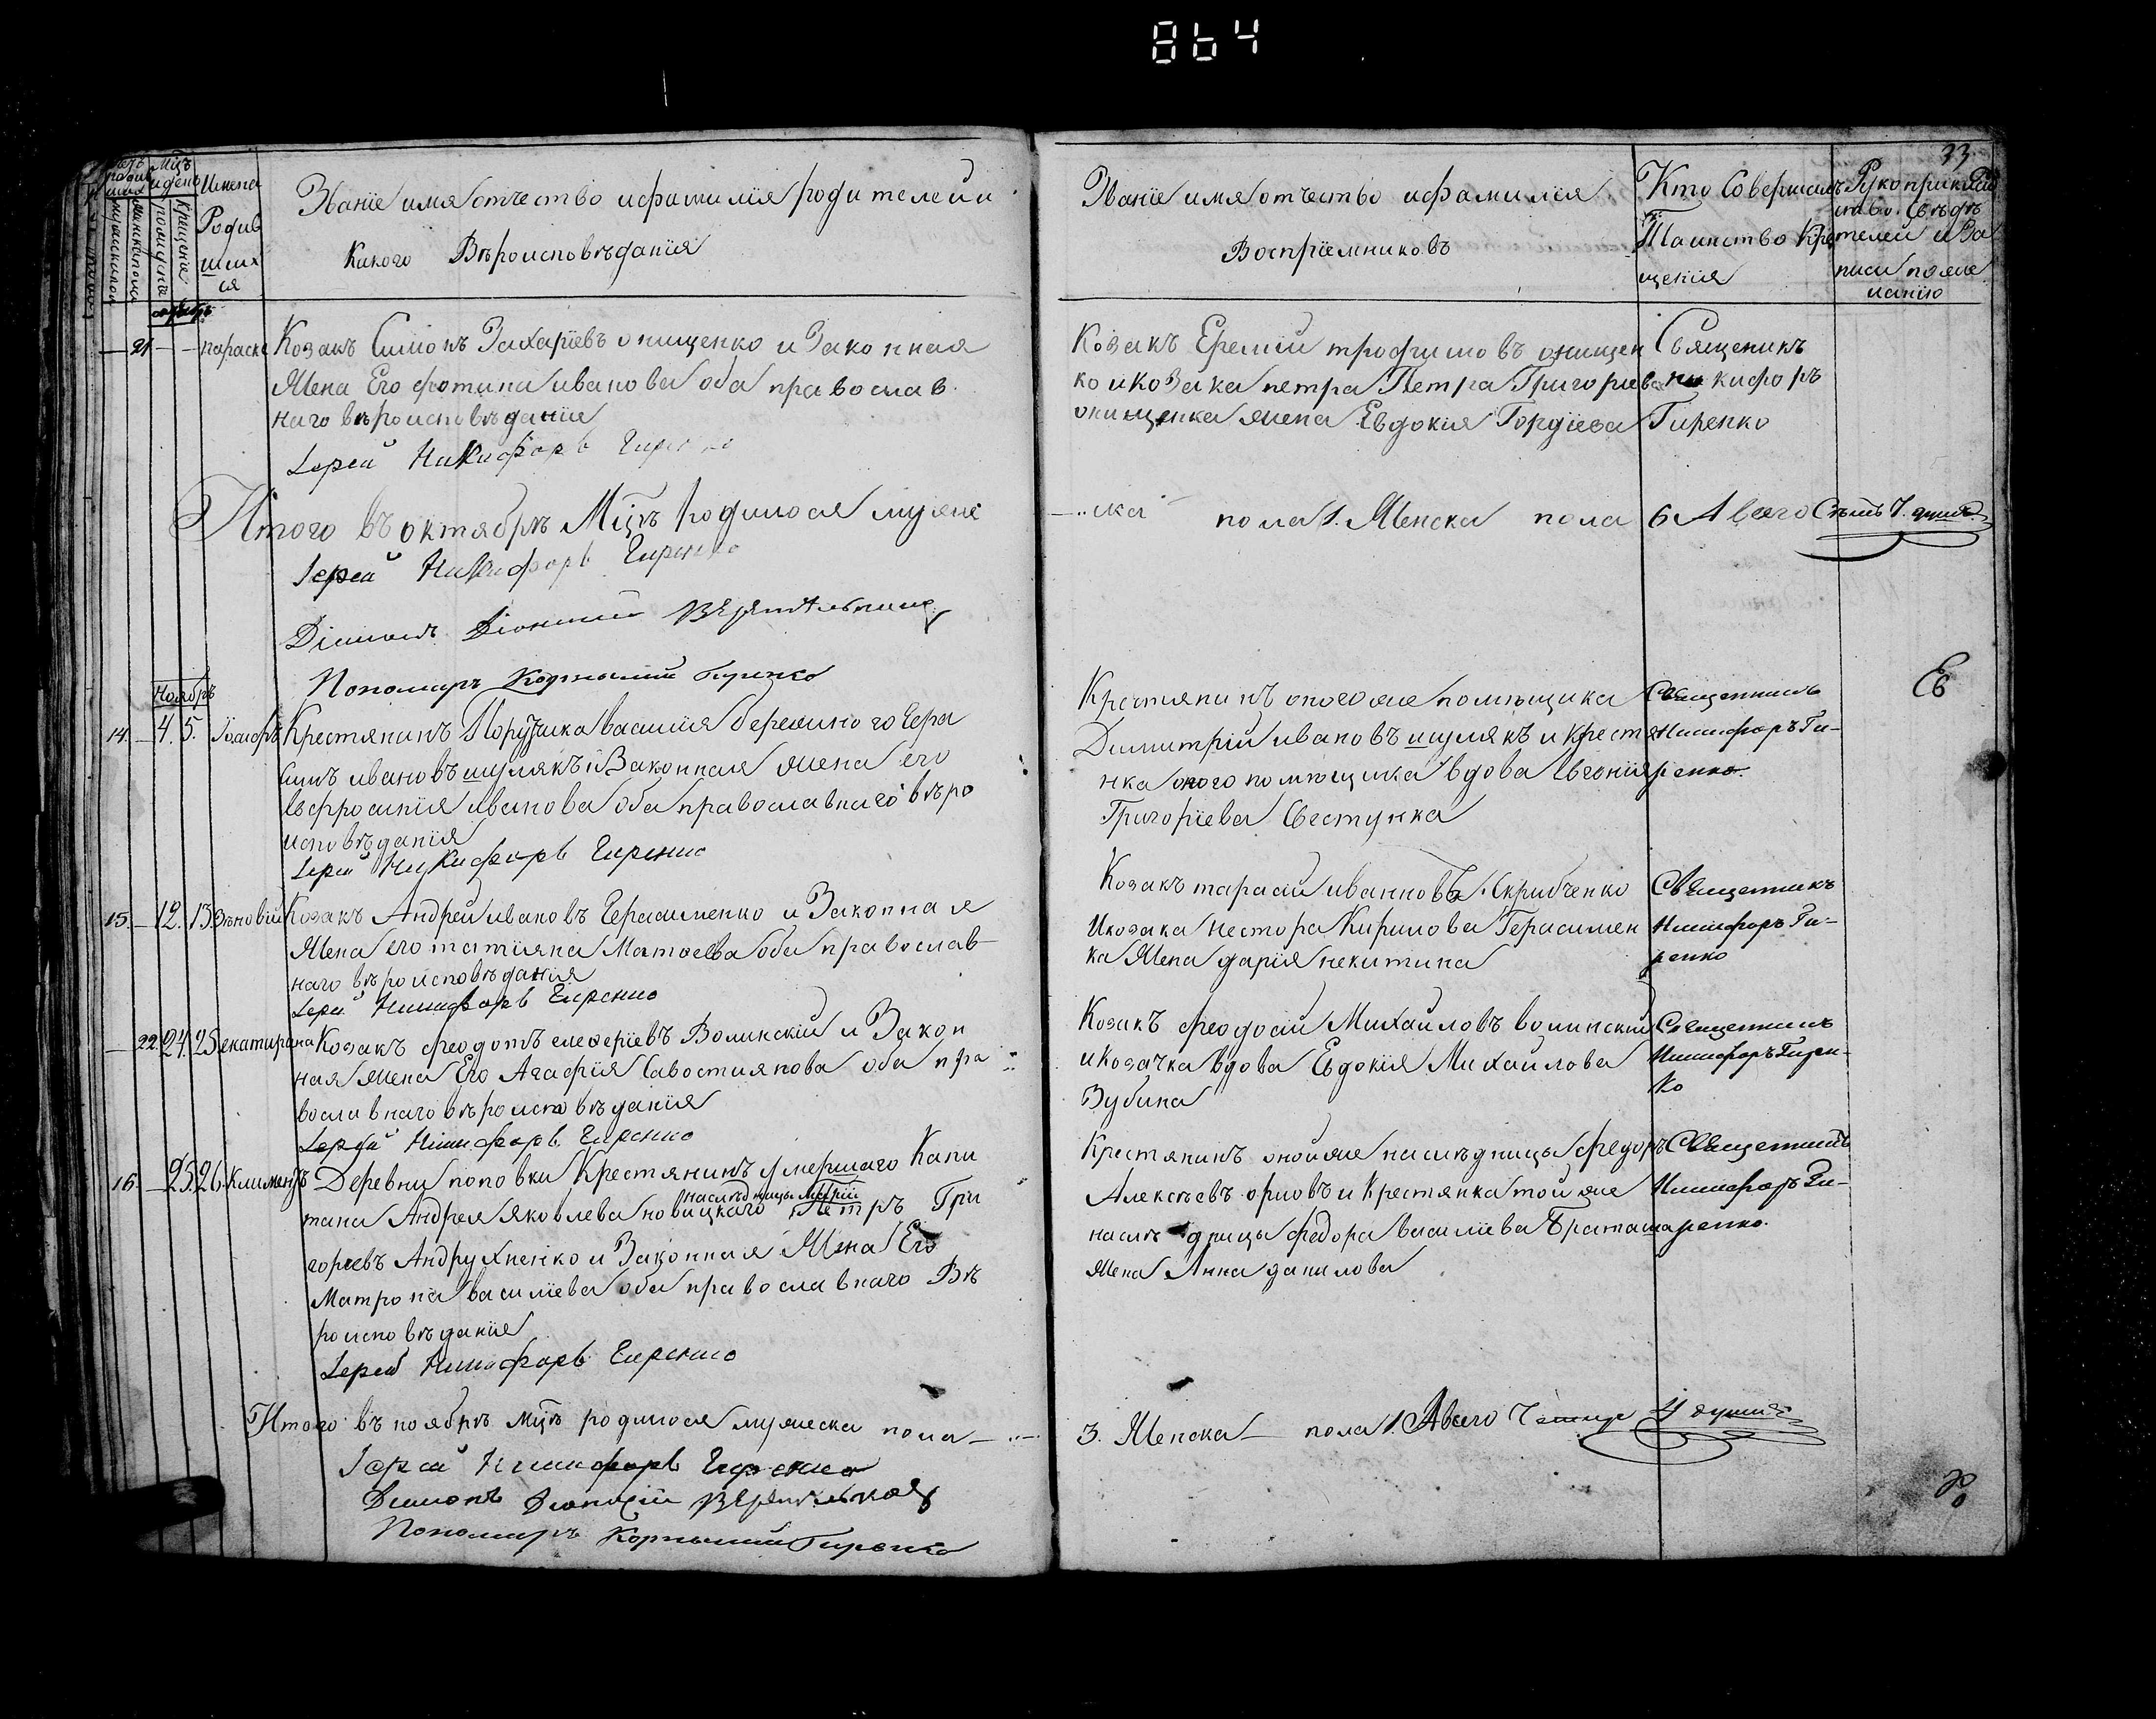 864
33
Мцъ
и день
Имена
Родив
ших
ся
Званїе имя отчество и фамилїя родителей и
какого Вѣроисповѣданїя
Званїе имя отчество и фамилїя
Воспрїемниковъ
Кто Совершилъ
Таинство Кре
щения
Рукоприклад
ство Свѣдѣ
телей
писи по же
ланїю
21 параске
Козакъ Симонъ Захарїевъ онищенко и Законная
Жена Его фотина иванова оба православ
наго вѣроисповѣданїя
Іерей Никифоръ Гиренко
Козакъ Еремїй трофимовъ онищен
ко и Козака петра Петра Григориева
онищенка жена Евдокия Гордїева
Священикъ
никифоръ
Гиренко
Итого въ октябрѣ Мцѣ родилося муже
ска пола 1. Женска пола 6 А всего Съмъ 7. душъ
Іерей Никифоръ Гиренко
Дїаконъ Дїонисїй
Пономарь Корнилий Гиренко
Ноябрь
14. 4. 5.
Крестянинъ Поручика василїя
ивановъ шулякъ и Законная жена его
Евфросинїя иванова оба православнаго вѣро
исповѣданїя
Іерей Никифоръ Гиренко
Крестянинъ оного же помѣщика
Димитрїй ивановъ шулякъ и крестя
нка оного помѣщика вдова Евгения
Григорїева
Священникъ
Никифоръ Ги-
ренко.
Ев
15. 12. 13 Зѣновїй
Козакъ Андрей ивановъ Герасименко и Законная
Жена его татияна Матоеева оба православ
наго вѣроисповѣданїя
Іерей Никифоръ Гиренко
Козакъ тарасий ивановъ Скрибченко
и козака нестора Кирилова Герасимен
ка Жена дарїя некитина
Священникъ
Никифоръ Ги-
ренко
22. 24. 25 екатирина
Козакъ феодотъ елеферїевъ Волинскїй и Закон
ная жена Его Агафїя Савостиянова оба пра
вославнаго вѣроисповѣданїя
Іерей Никифоръ Гиренко
Козакъ феодосїй Михайловъ волинский
и козачка вдова Евдокїя Михаилова
Зубина
Священникъ
Никифоръ Гирен-
ко
16. 25. 26. Климентъ
Деревни поповки Крестянинъ умершаго Капи
наслѣдницы Марїи
тана Андрея Яковлева новицкаго Петръ Гри
гориевъ Андрухненко и Законная Жена Его
Матрона василїева оба православнаго Вѣ
роисповѣданїя
Іерей Никифоръ Гиренко
Крестянинъ оной же наслѣдницы федоръ
Алексѣевъ орловъ и Крестянка той же
наслѣдницы федора василїева Браташа
Жена Анна данилова
Священникъ
Никифоръ Ги-
ренко.
Итого въ ноябрѣ мцѣ родилося мужеска пола
3. Женска пола 1. А всего 4 души
Іерей Никифоръ Гиренко
Дїаконъ Дїонисїй
Пономарь Корнилий Гиренко